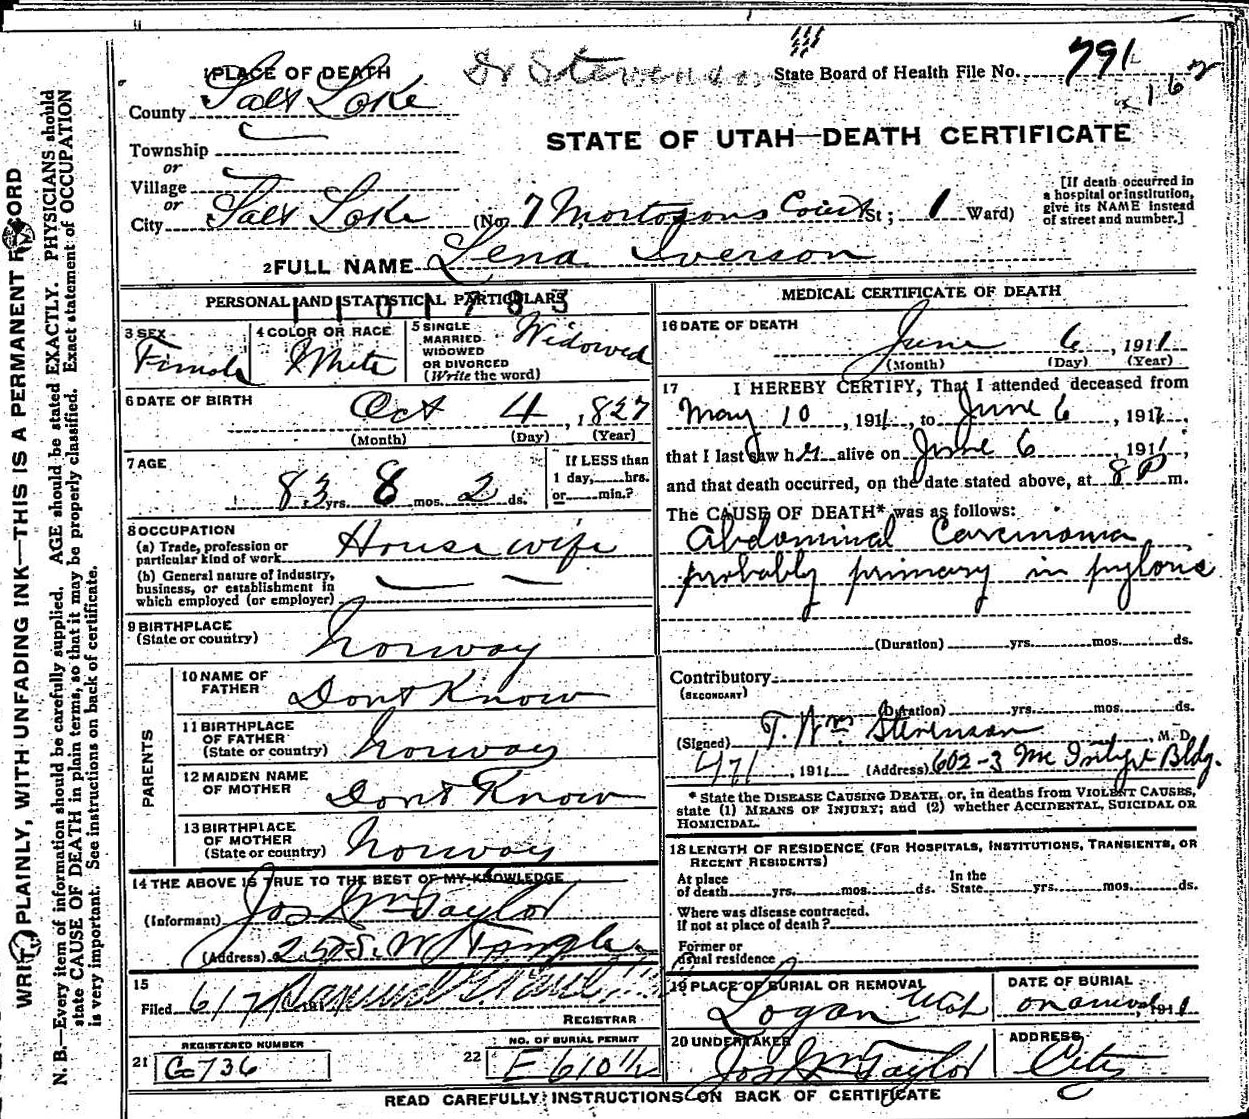 Dr Stevenson
State Board of Health File No. 791
162
1 PLACE OF DEATH
County Salt Lake
STATE OF UTAH—DEATH CERTIFICATE
Township
or
Village
or
City Salt Lake (No. 7 Court St; 1 Ward)
[If death occurred in
a hospital or institution,
give its NAME instead
of street and number.]
2 FULL NAME Lena Iverson
PERSONAL AND STATISTICAL PARTICULARS
1101783
3 SEX Female
4 COLOR OR RACE White
5 SINGLE
MARRIED
WIDOWED
OR DIVORCED
(Write the word)
Widowed
6 DATE OF BIRTH Oct 4, 1827
(Month) (Day) (Year)
7 AGE 83 yrs. 8 mos. 2 ds.
If LESS than
1 day, hrs.
or min.?
8 OCCUPATION
(a) Trade, profession or
particular kind of work House wife
(b) General nature of industry,
business, or establishment in
which employed (or employer)
9 BIRTHPLACE
(State or country) Norway
PARENTS
10 NAME OF
FATHER Dont Know
11 BIRTHPLACE
OF FATHER
(State or country) Norway
12 MAIDEN NAME
OF MOTHER Dont Know
13 BIRTHPLACE
OF MOTHER
(State or country) Norway
14 THE ABOVE IS TRUE TO THE BEST OF MY KNOWLEDGE
(Informant) Jos Wm Taylor
(Address) S. W. Temple
15
Filed 6/7
REGISTRAR
REGISTERED NUMBER
21 G 736
NO. OF BURIAL PERMIT
22 E 610 1/2
MEDICAL CERTIFICATE OF DEATH
16 DATE OF DEATH
June 6, 1911
(Month) (Day) (Year)
17 I HEREBY CERTIFY, That I attended deceased from
May 10, 1911, to June 6, 1911,
that I last saw her alive on June 6, 1911,
and that death occurred, on the date stated above, at 8 P m.
The CAUSE OF DEATH* was as follows:
Abdominal Carcinoma
probably primary in pyloris
(Duration) yrs. mos. ds.
Contributory
(SECONDARY)
(Duration) yrs. mos. ds.
(Signed) T. Wm Stevenson, M. D.
6/7/, 1911 (Address) 602-3 Mc Intyre Bldg.
* State the DISEASE CAUSING DEATH, or, in deaths from VIOLENT CAUSES,
state (1) MEANS OF INJURY; and (2) whether ACCIDENTAL, SUICIDAL OR
HOMICIDAL.
18 LENGTH OF RESIDENCE (FOR HOSPITALS, INSTITUTIONS, TRANSIENTS, OR
RECENT RESIDENTS)
At place
of death yrs. mos. ds.
In the
State yrs. mos. ds.
Where was disease contracted.
if not at place of death?
Former or
usual residence
19 PLACE OF BURIAL OR REMOVAL
Logan Utah
DATE OF BURIAL
on arrival, 1911
20 UNDERTAKER
Jos Wm Taylor
ADDRESS
City
READ CAREFULLY INSTRUCTIONS ON BACK OF CERTIFICATE
WRITE PLAINLY, WITH UNFADING INK—THIS IS A PERMANENT RECORD
N. B.—Every item of information should be carefully supplied. AGE should be stated EXACTLY. PHYSICIANS should
state CAUSE OF DEATH in plain terms, so that it may be properly classified. Exact statement of OCCUPATION
is very important. See instructions on back of certificate.